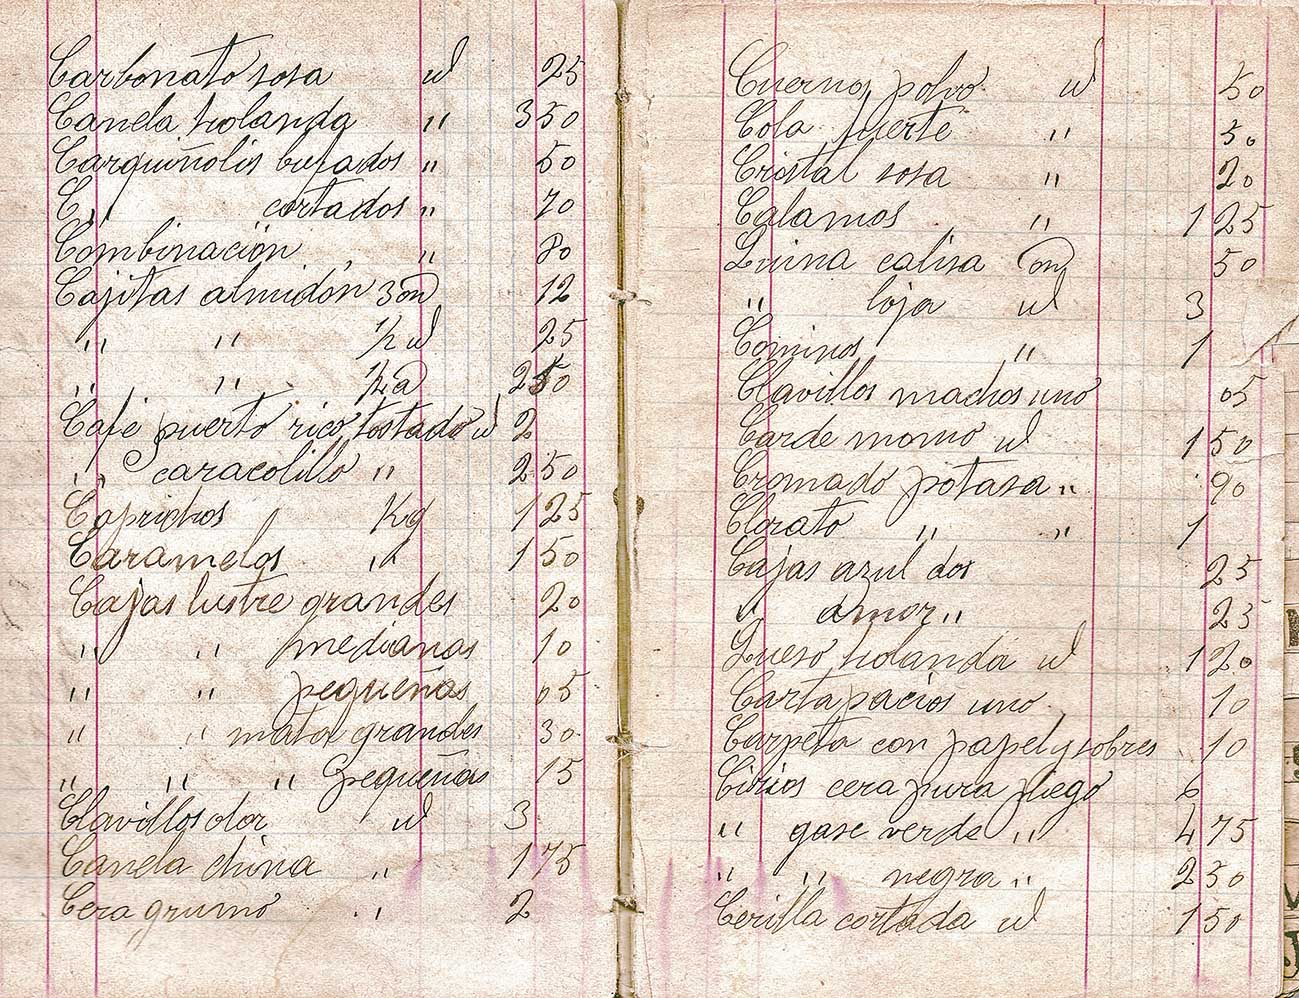 Carbonato sosa ul 25
Canela holanda " 350
Carquiñolis bufados " 50
C " cortados " 70
Combinación " 80
Cajitas almidón 3 on 12
" " ½ ul 25
" " ½ a 250
Café puerto rico tostado ul 2
" caracolillo " 250
Caprichos Kg 125
Caramelos ul 150
Cajas lustre grandes 20
" " medianas 10
" " pequeñas 05
" " mator grandes 30
" " " pequeñas 15
Clavillos olor ul 3
Canela china " 175
Cera grumo " 2
Cuernos polvo ul 50
Cola fuerte " 50
Cristal sosa " 20
Calamos " 125
Quina calisa on 50
" loja ul 3
Cominos " 1
Clavillos machos uno 05
Carde momo ul 150
Cromado potasa " 90
Clorato " " 1
Cajas azul dos 25
" amor " 25
Queso holanda ul 120
Cartapacios uno 10
Carpeta con papel y sobres 10
Cirios cera pura pliego 6
" gase verde " 475
" " negra " 250
Cerilla cortada ul 150